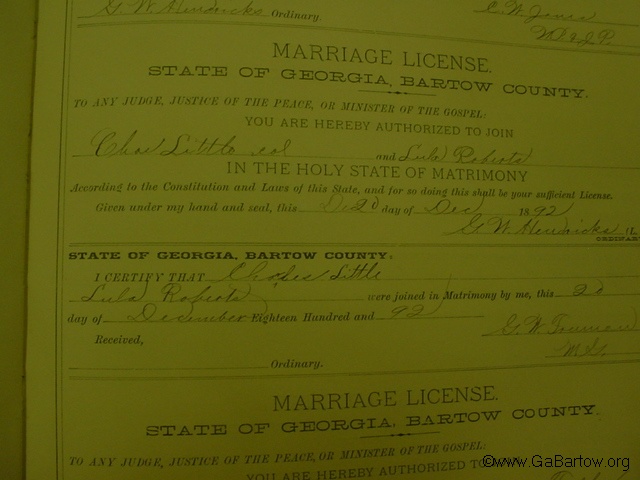 G. W. Hendricks Ordinary.
C. W. Jones
J.P.
MARRIAGE LICENSE.
STATE OF GEORGIA, BARTOW COUNTY.
TO ANY JUDGE, JUSTICE OF THE PEACE, OR MINISTER OF THE GOSPEL:
YOU ARE HEREBY AUTHORIZED TO JOIN
Chas Little col and Lula Roberts
IN THE HOLY STATE OF MATRIMONY
According to the Constitution and Laws of this State, and for so doing this shall be your sufficient License.
Given under my hand and seal, this 20 day of Dec 1892
G. W. Hendricks (L
ORDINAR
STATE OF GEORGIA, BARTOW COUNTY.
I CERTIFY THAT Charles Little
Lula Roberts were joined in Matrimony by me, this 20
day of December Eighteen Hundred and 92
G. W.
M.G.
Received,
Ordinary.
MARRIAGE LICENSE.
STATE OF GEORGIA, BARTOW COUNTY.
TO ANY JUDGE, JUSTICE OF THE PEACE, OR MINISTER OF THE GOSPEL:
YOU ARE HEREBY AUTHORIZED TO
©www.GaBartow.org